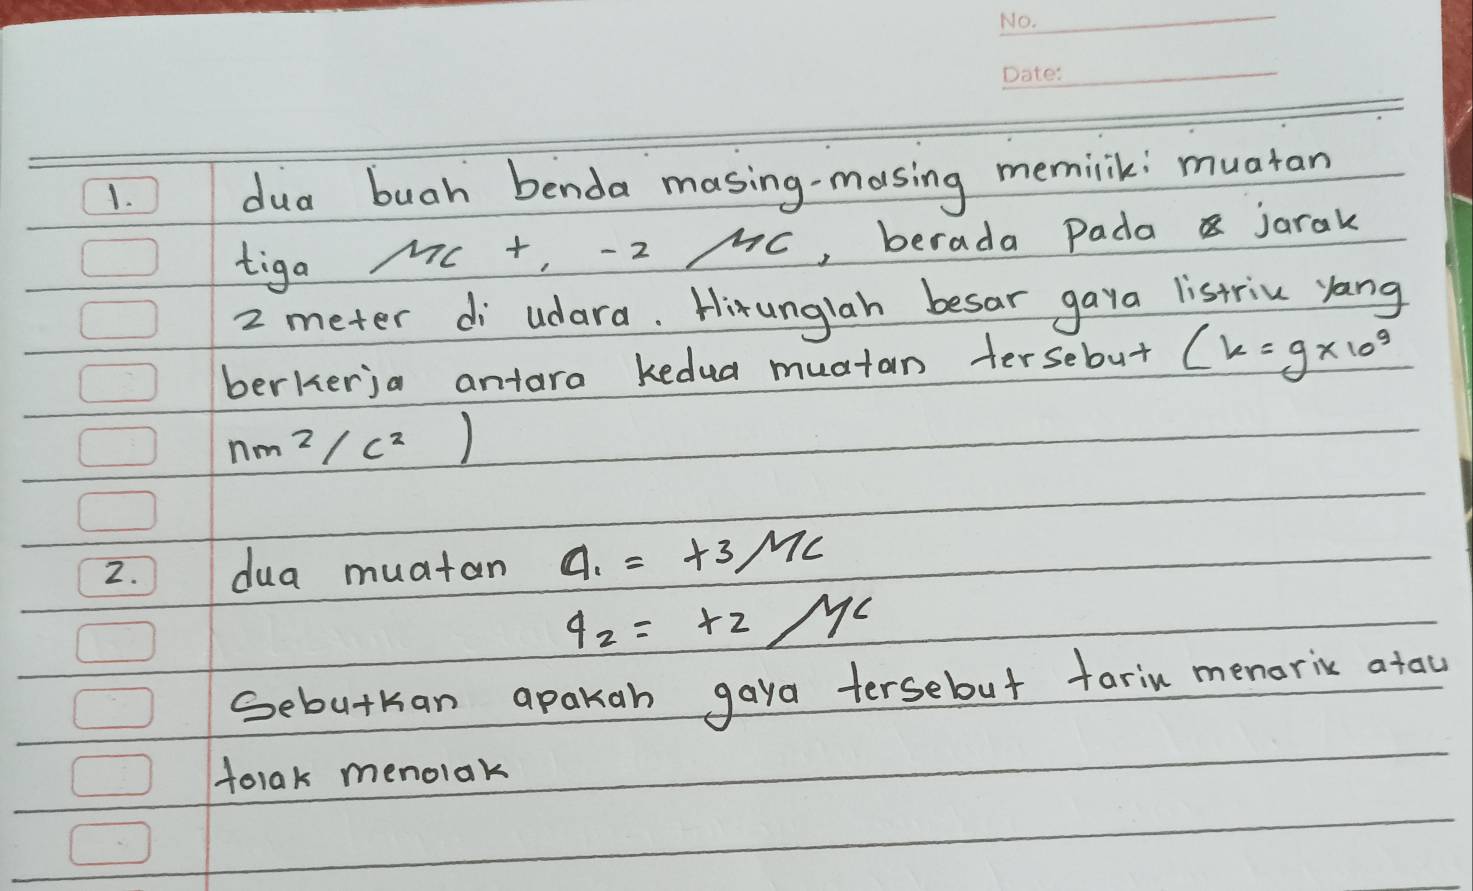 No.
Date:
1. dua buah benda masing-masing memiliki muatan
tiga μC +, -2 μC, berada pada jarak
2 meter di udara. Hitunglah besar gaya listrik yang
berkerja antara kedua muatan tersebut (k = 9 x 10⁹
nm²/c²)
2. dua muatan q₁ = +3 μC
q₂ = +2 μC
Sebutkan apakah gaya tersebut tarik menarik atau
tolak menolak